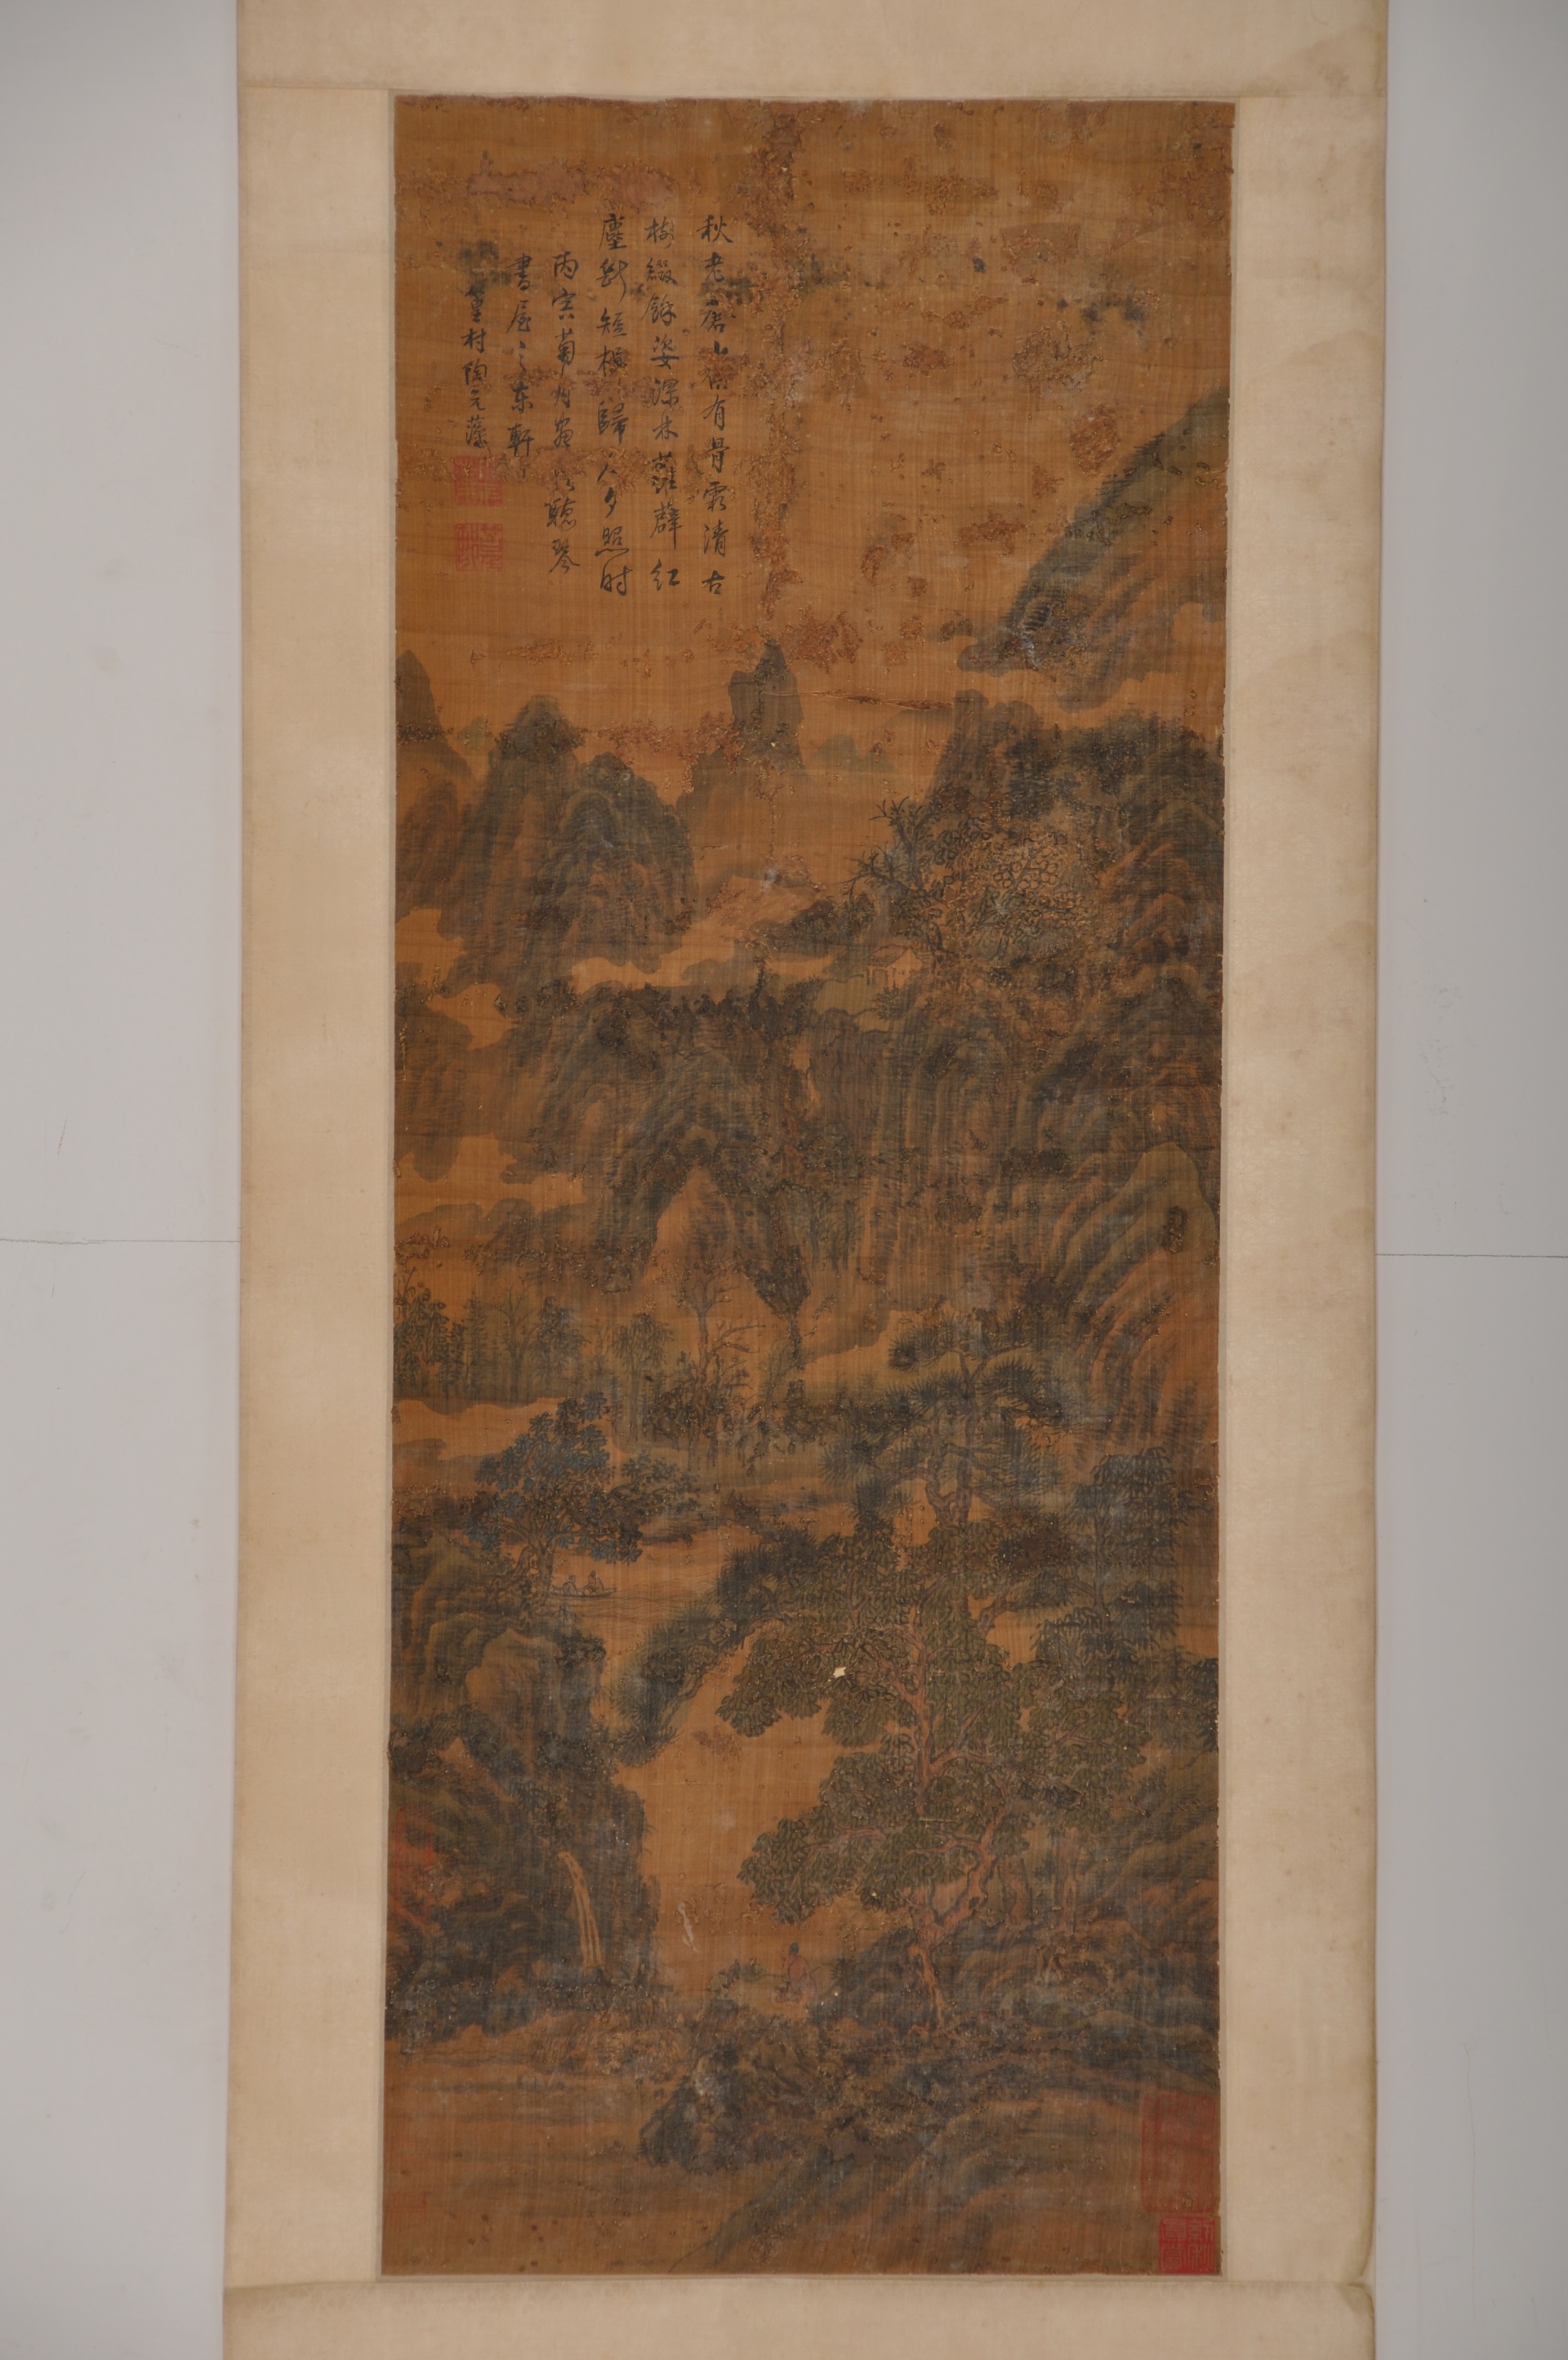 秋老君山自有骨霜清古
樹綴餘姿深林薜荔紅
塵斷短棹歸人夕照时
丙寅菊月畫於聽琴
書屋之东軒
篁村陶元藻